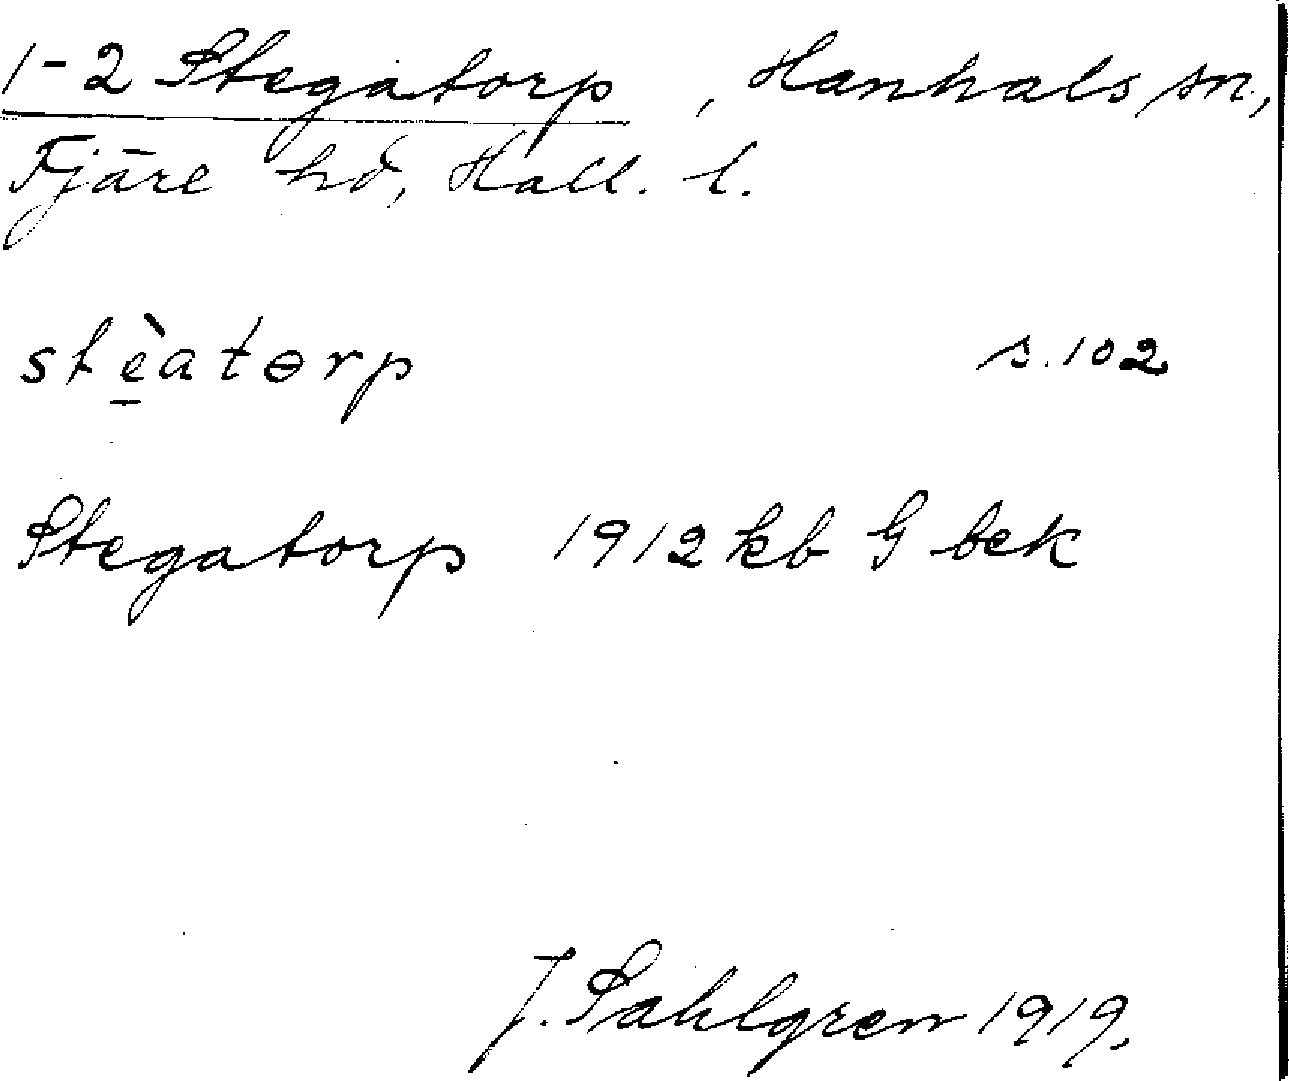 1-2 Stegatorp, Hanhals sn.,
Fjäre hd, Hall. l.
stè̱atɵrp s. 102
Stegatorp 1912 kb G bek
J. Sahlgren 1919.